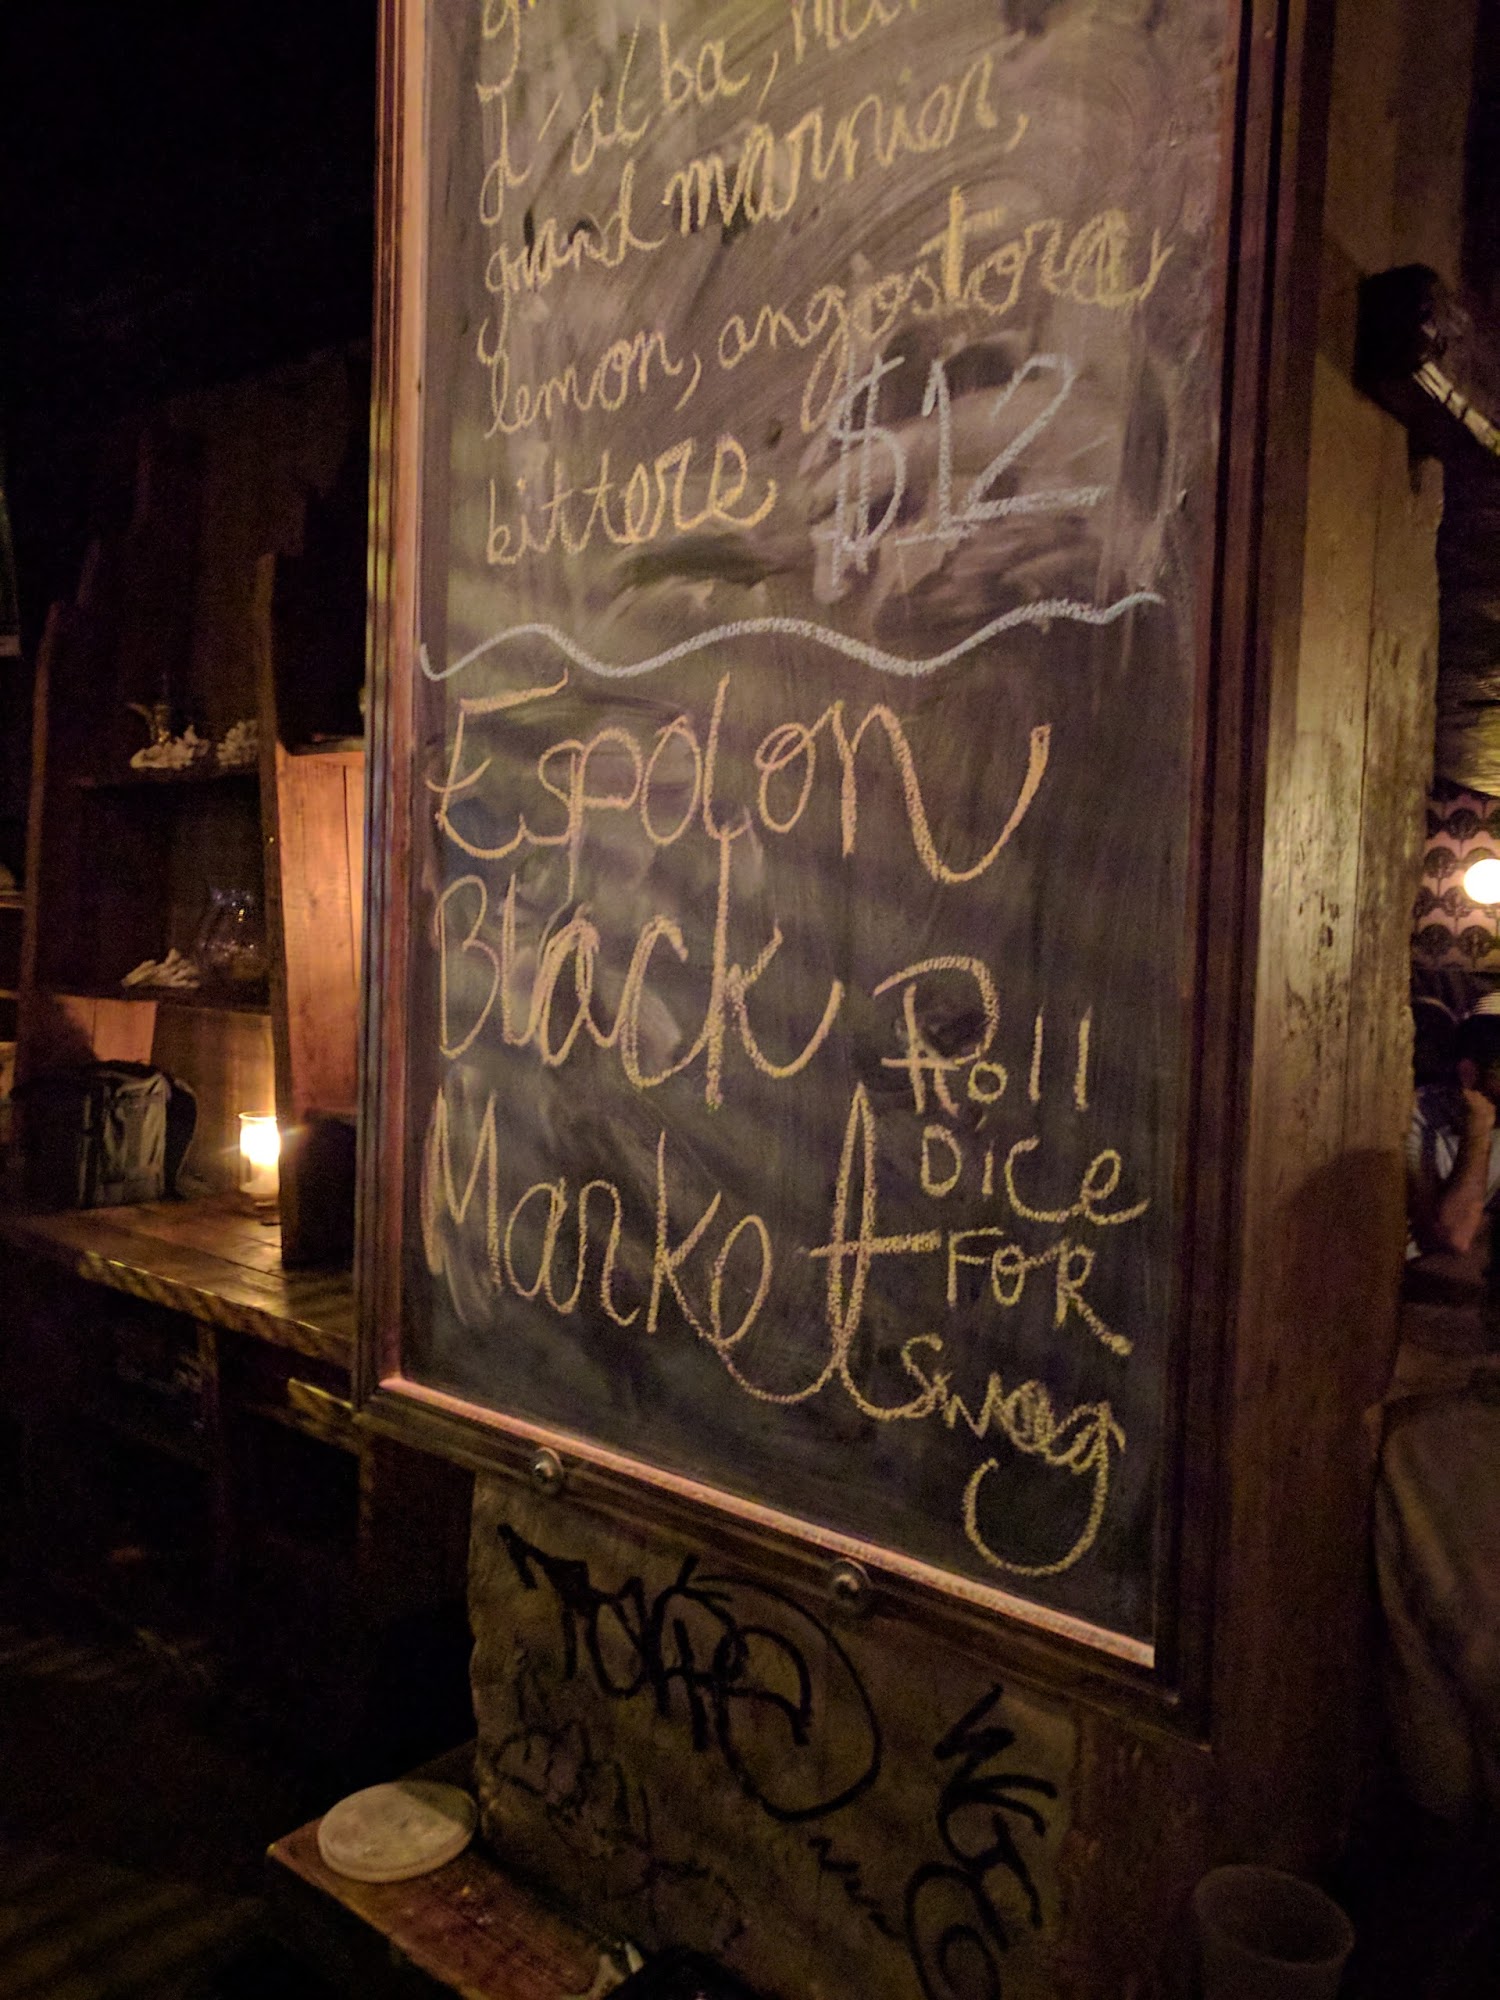 d'alba,
grand marnier,
lemon, angostora
bitters $12
Espolon
Black
Market
Roll
Dice
FOR
Swag